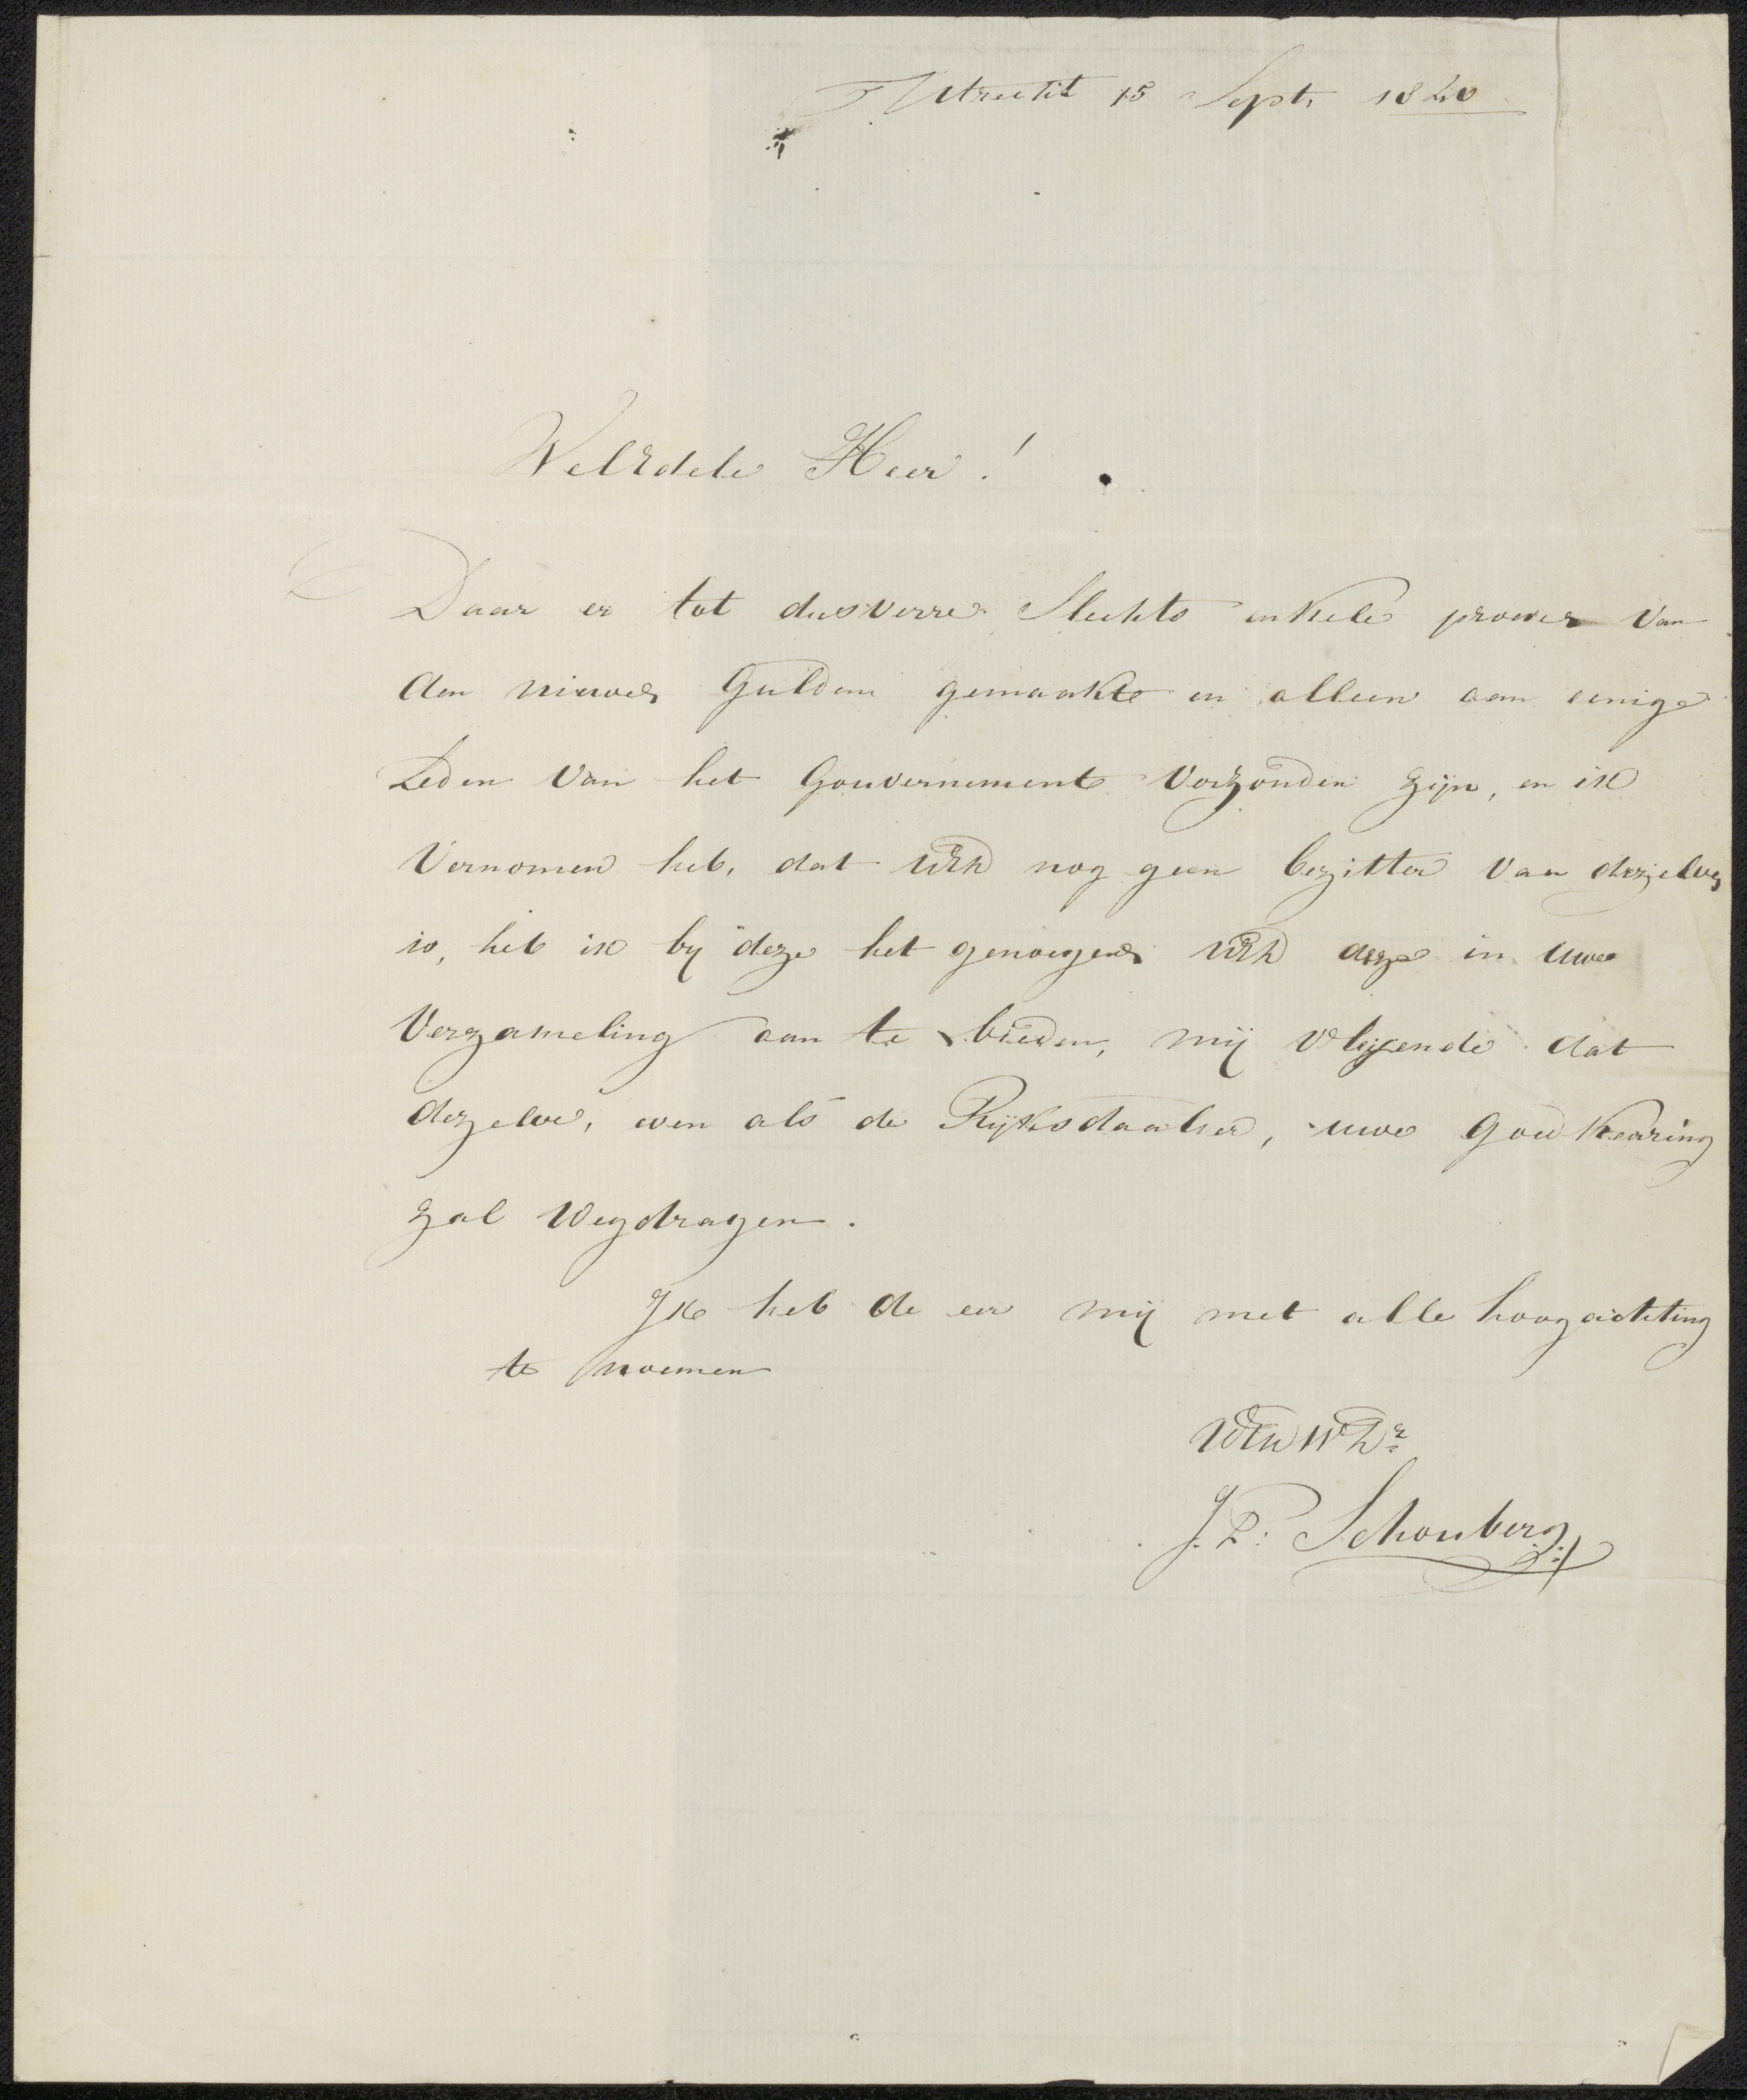 Utrecht 15 Sept. 1840
WelEdele Heer!
Daar er tot dusverre slechts enkele proeven van
den nieuwen Gulden gemaakt en alleen aan eenige
Leden van het Gouvernement verzonden zijn, en ik
vernomen heb, dat UEd nog geen bezitter van dezelve
is, heb ik by deze het genoegen UEd deze in uwe
Verzameling aan te bieden, mij vleyende dat
dezelve, even als de Rijksdaalder, uwe goedkeuring
zal wegdragen.
Ik heb de eer mij met alle hoogachting
te noemen
J. P. Schouberg